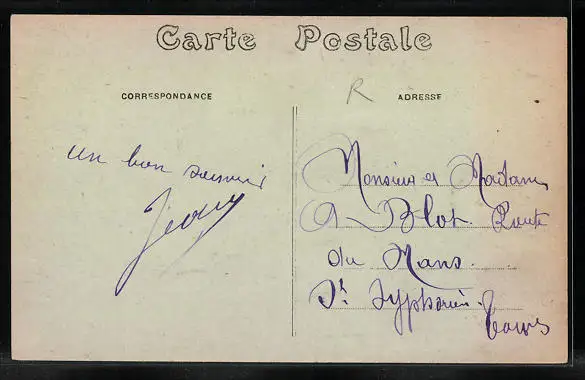 Carte Postale
CORRESPONDANCE
ADRESSE
R
un bon souvenir
Monsieur et Madame
A Blot Route
du Mans
St Syphorien
Tours